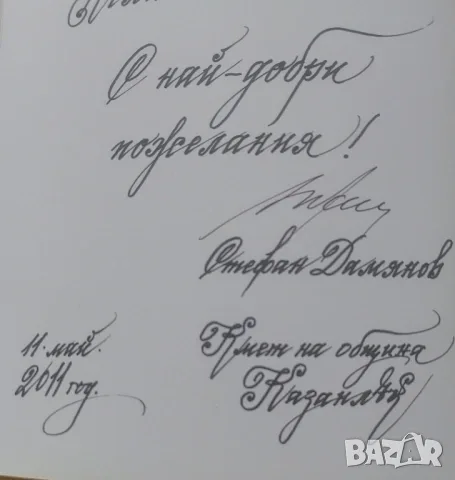 С най-добри
пожелания!
Стефан Дамянов
11. май.
2011 год.
Кмет на община
Казанлък
BAZAR
bg